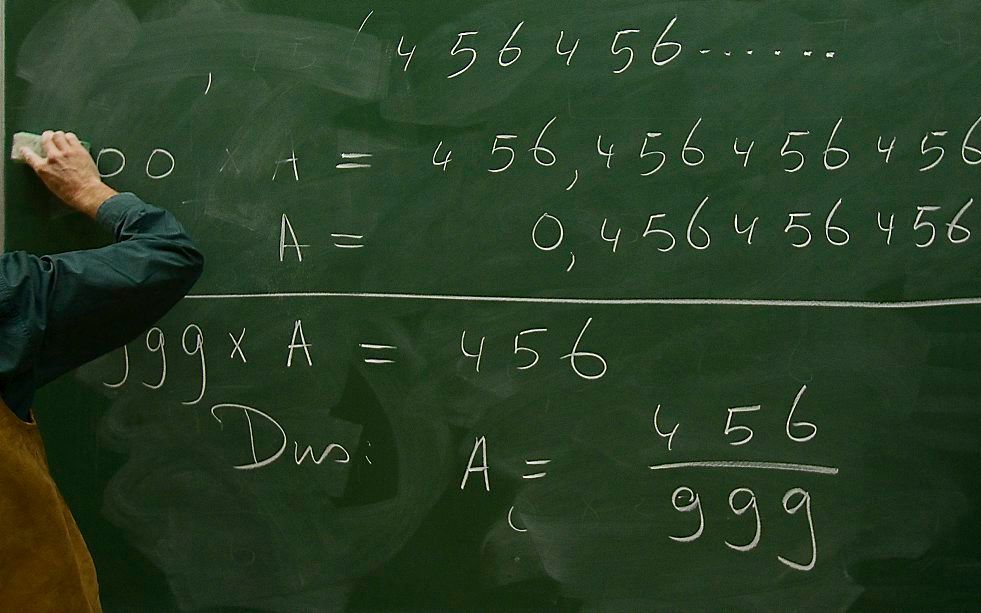 6 4 5 6 4 5 6 . . . . . .
,
0 0 x A = 4 5 6 , 4 5 6 4 5 6 4 5 6
A = 0 , 4 5 6 4 5 6 4 5 6
9 9 9 x A = 4 5 6
Dus :
A = 4 5 6
9 9 9